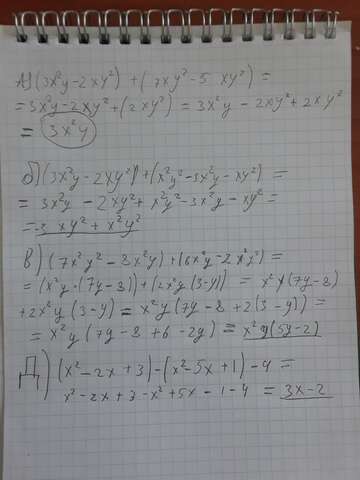 А) (3x²y - 2xy²) + (7xy² - 5 xy²) =
= 3x²y - 2xy² + (2xy²) = 3x²y - 2xy² + 2xy²
= 3x²y
б) (3x²y - 2xy²) + (x²y² - 3x²y - xy²) =
= 3x²y - 2xy² + x²y² - 3x²y - xy² =
= -3 xy² + x²y²
В) (7x²y² - 8x²y) + (6x²y - 2x²y²) =
= (x²y · (7y - 8)) + (2x²y (3 - y)) = x²y (7y - 8)
+ 2x²y (3 - y) = x²y (7y - 8 + 2(3 - y)) =
= x²y (7y - 8 + 6 - 2y) = x²y (5y - 2)
Д) (x² - 2x + 3) - (x² - 5x + 1) - 4 =
x² - 2x + 3 - x² + 5x - 1 - 4 = 3x - 2